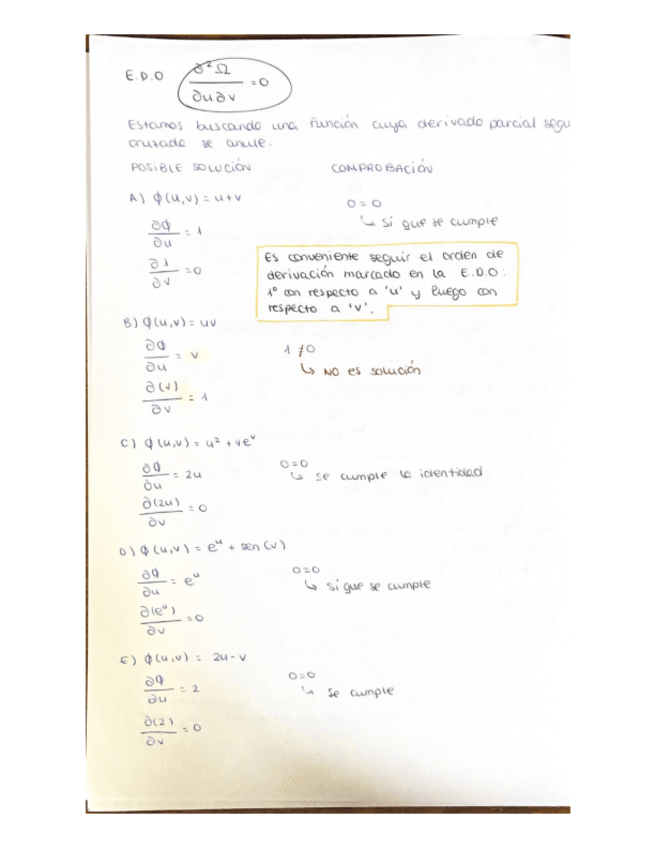 E.D.O ∂²Ω/∂u∂v = 0
Estamos buscando una función cuya derivada parcial segu
cruzada se anule.
POSIBLE SOLUCIÓN COMPROBACIÓN
A) ϕ(u,v) = u+v 0 = 0
↳ Sí que se cumple
∂ϕ/∂u = 1
∂1/∂v = 0
Es conveniente seguir el orden de
derivación marcado en la E.D.O:
1º con respecto a 'u' y luego con
respecto a 'v'.
B) ϕ(u,v) = uv
∂ϕ/∂u = v 1 ≠ 0
↳ NO es solución
∂(v)/∂v = 1
C) ϕ(u,v) = u² + ve^v
∂ϕ/∂u = 2u 0=0
↳ se cumple la identidad
∂(2u)/∂v = 0
D) ϕ(u,v) = e^u + sen(v)
∂ϕ/∂u = e^u 0=0
↳ sí que se cumple
∂(e^u)/∂v = 0
E) ϕ(u,v) = 2u-v
∂ϕ/∂u = 2 0=0
↳ se cumple
∂(2)/∂v = 0